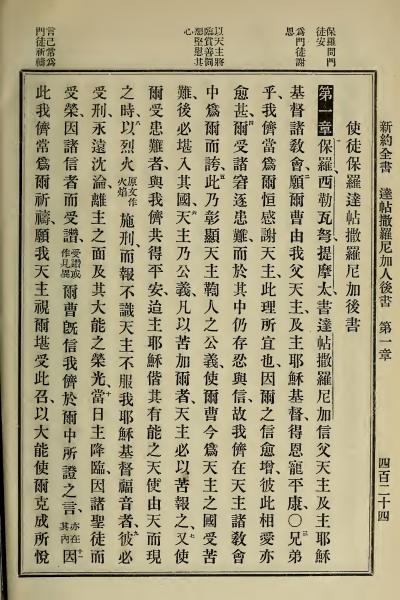 新約全書　達帖撒羅尼加人後書　第一章　四百二十四
保羅問門徒安
爲門徒謝恩
以天主將臨賞善罰惡堅慰其心
言己常爲門徒祈禱
使徒保羅達帖撒羅尼加後書
第一章保羅、西勒瓦弩、提摩太、書達帖撒羅尼加信父天主及主耶穌
基督諸敎會、願爾曹由我父天主、及主耶穌基督、得恩寵平康、〇三兄弟
乎、我儕當爲爾恒感謝天主、此理所宜也、因爾之信愈增、彼此相愛亦
愈甚、四爾受諸窘逐患難、而於其中仍存忍與信、故我儕在天主諸敎會
中爲爾而誇、五此乃彰顯天主鞫人之公義、使爾曹今爲天主之國受苦
難、後必堪入其國、六天主乃公義、凡以苦加爾者、天主必以苦報之、七又使
爾受患難者、與我儕共得平安、迨主耶穌偕其有能之天使由天而現
之時、八以烈火原文作火焰施刑、而報不識天主不服我耶穌基督福音者、九彼必
受刑、永遠沈淪、離主之面、及其大能之榮光、十當日主降臨、因諸聖徒而
受榮、因諸信者而受讚、受讚或作見異爾曹旣信我儕於爾中所證之言、亦在其內十一因
此我儕常爲爾祈禱、願我天主視爾堪受此召、以大能使爾克成所悅